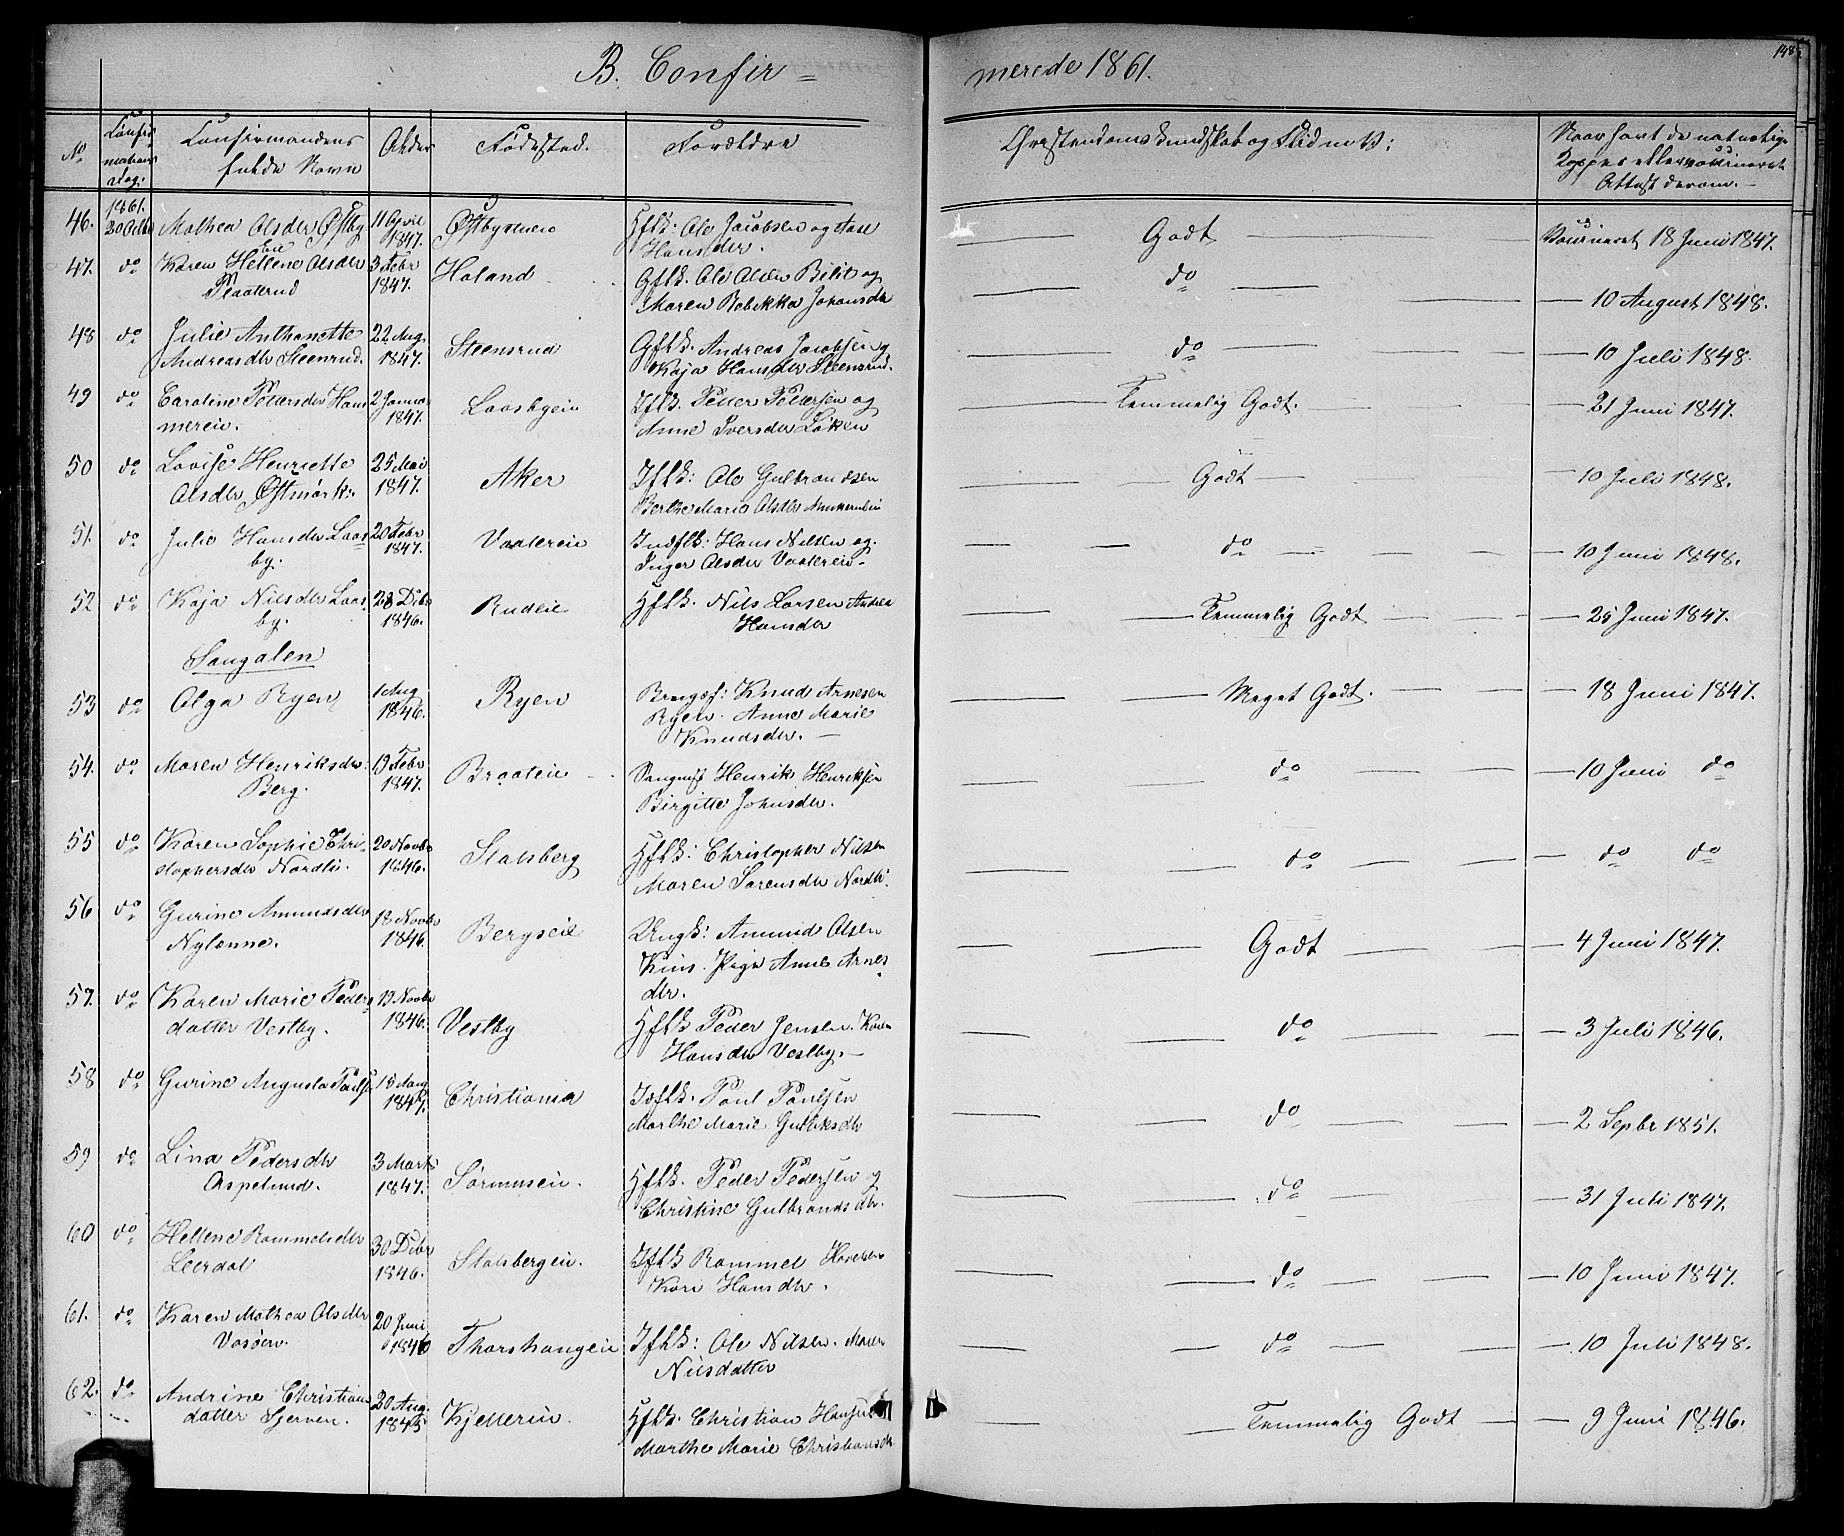 B. Confir = merede 1861.
148
No
Confirmations Dag:
Confirmandens fulde Navn
Alder
Fødested.
Forældre
Christendoms Kundskab og Flid m. V:
Naar havt de naturlige Kopper eller vaccineret Attest derom.
46. 1861. 20 Octbr Mathea Olsdtr Østby 11 April 1847. Østbyeien Gflk: Ole Jacobsen og Aase Hansdtr. Godt Vaccineret 18 Juni 1847.
47. do Karen Hellene Olsdtr Plaaterud 3 Febr 1847. Holand Gflk. Ole Olsen og Maren Rebekka Johansdtr do 10 August 1848.
48 do Julie Anthonette Andreasdtr Steensrud. 22 Aug. 1847. Steensrud Gflk. Andreas Jacobsen og Kaja Hansdtr Steensrud. do 10 Juli 1848.
49 do Caroline Pettersdtr Hammereie. 2 Januar 1847. Laasbyeie Iflk. Petter Pettersen og Anne Iversdtr Løken Temmelig Godt. 21 Juni 1847.
50 do Lovise Henriette Olsdtr Østmork: 25 Mai 1847. Aker Iflk: Ole Gulbrandsen Berthe Marie Olsdtr Godt 10 Juli 1848.
51. do Julie Hansdtr Laasby. 20 Febr 1847. Vaatereie Indflk: Hans Nilsen og Inger Olsdtr Vaatereie do 10 Juni 1848.
52 do Kaja Nilsdtr Laasby. 28 Debr 1846. Rudeie Hflk. Nils Larsen Andrea Hansdtr Temmelig Godt 25 Juni 1847.
Langalen
53 do Olga Ryen 1 Aug 1846. Ryen Knud Arnesen Ryen. Anne Marie Knudsdtr. Meget Godt. 18 Juni 1847.
54. do Maren Henriksdtr: Berg. 19 Febr 1847. Braateie Henrik Henriksen Birgitte Johnsdtr. do 10 Juni do
55 do Karen Sophie Christophersdtr Nordli. 20 Novbr 1846. Stalsberg Hflk: Christopher Nilsen Maren Sorensdtr Nordli. do do do
56 do Gurine Amundsdtr Nylænne. 18 Novbr 1846. Bergseie Ungk: Amund Olsen Pige Anne Arnesdtr. Godt 4 Juni 1847.
57. do Karen Marie Pedersdatter Vestby. 19 Novbr 1846. Vestby Hflk Peder Jensen. Karen Hansdtr Vestby. do 3 Juli 1846.
58 do Gurine Augusta Paulsen 15 Aug 1847. Christiania Iflk. Paul Paulsen Marthe Marie Gulliksdtr do 2 Sepbr 1851.
59 do Lina Pedersdtr Aspelund. 3 Marts 1847. Sørmuseie. Hflk. Peder Pedersen og Christine Gulbrandsdtr. do 31 Juli 1847.
60 do Hellene Rammelsdtr Leerdal 30 Debr 1846. Stalsbergeie. Iflk Rammel Kari Hansdtr. do 10 Juni 1847.
61. do Karen Mathea Olsdtr Vasøen. 20 Juni 1846 Thorshaugeie Iflk: Ole Nilsen. Maren Nilsdatter do 10 Juli 1848.
62. do Andrine Christiansdatter Tjerven. 20 Aug. 1845 Kjellerie. Hflk. Christian Hansen Marthe Marie Christiansdtr Temmelig Godt 9 Juni 1846.